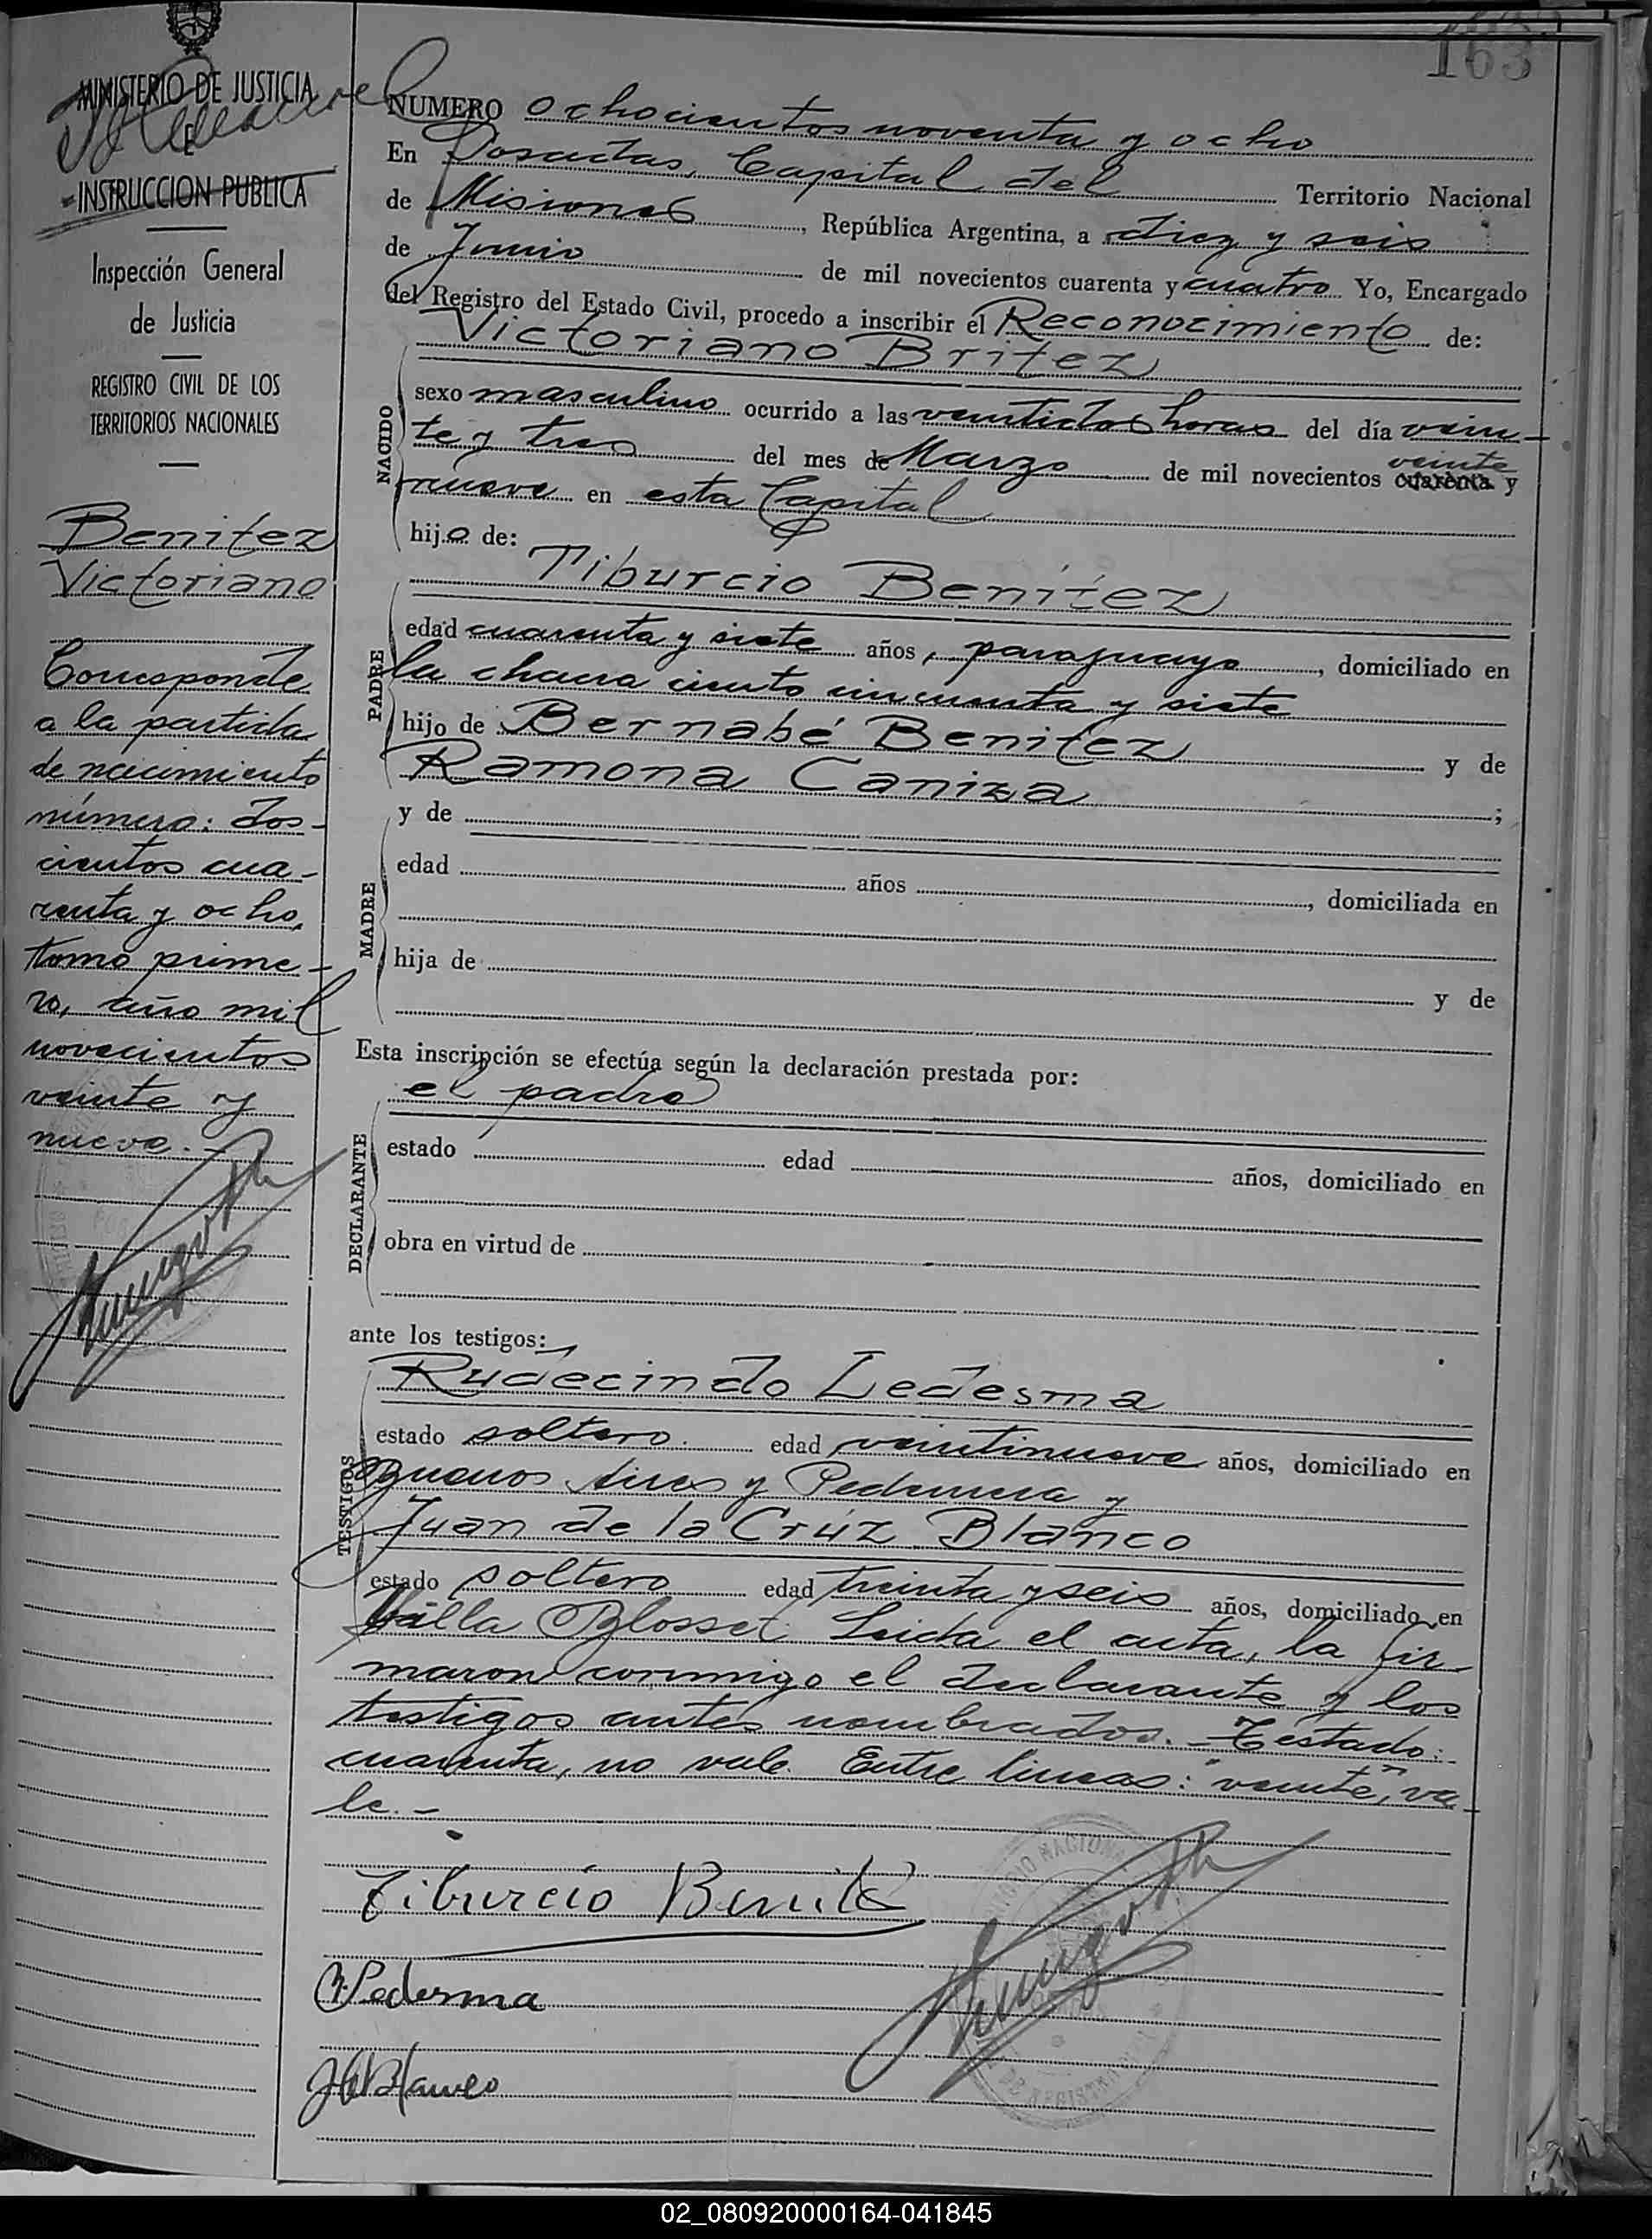 163
MINISTERIO DE JUSTICIA
E
INSTRUCCION PUBLICA
Inspección General
de Justicia
REGISTRO CIVIL DE LOS
TERRITORIOS NACIONALES
Benitez
Victoriano
Corresponde
a la partida
de nacimiento
número: dos-
cientos cua-
renta y ocho,
tomo prime-
ro, año mil
novecientos
veinte y
nueve.-
NUMERO ochocientos noventa y ocho
En Posadas, Capital del Territorio Nacional
de Misiones, República Argentina, a diez y seis
de Junio de mil novecientos cuarenta y cuatro Yo, Encargado
del Registro del Estado Civil, procedo a inscribir el Reconocimiento de:
Victoriano Britez
NACIDO
sexo masculino ocurrido a las veintidos horas del día vein-
te y tres del mes de Marzo de mil novecientos cuarenta veinte y
nueve en esta Capital
hijo de:
Tiburcio Benítez
PADRE
edad cuarenta y siete años, paraguayo, domiciliado en
la chacra ciento cincuenta y siete
hijo de Bernabé Benitez y de
Ramona Caniza;
y de
MADRE
edad años, domiciliada en
hija de y de
Esta inscripción se efectúa según la declaración prestada por:
el padre
DECLARANTE
estado edad años, domiciliado en
obra en virtud de
ante los testigos:
Rudecindo Ledesma
TESTIGOS
estado soltero. edad veintinueve años, domiciliado en
Buenos Aires y Pedernera y
Juan de la Crúz Blanco
estado soltero edad treinta y seis años, domiciliado en
Villa Blosset. Leida el acta, la fir-
maron conmigo el declarante y los
testigos antes nombrados.- Testado:
cuarenta, no vale. Entre lineas: "veinte", va-
le.-
Tiburcio Benite
R. Ledesma
Blanco
02_080920000164-041845